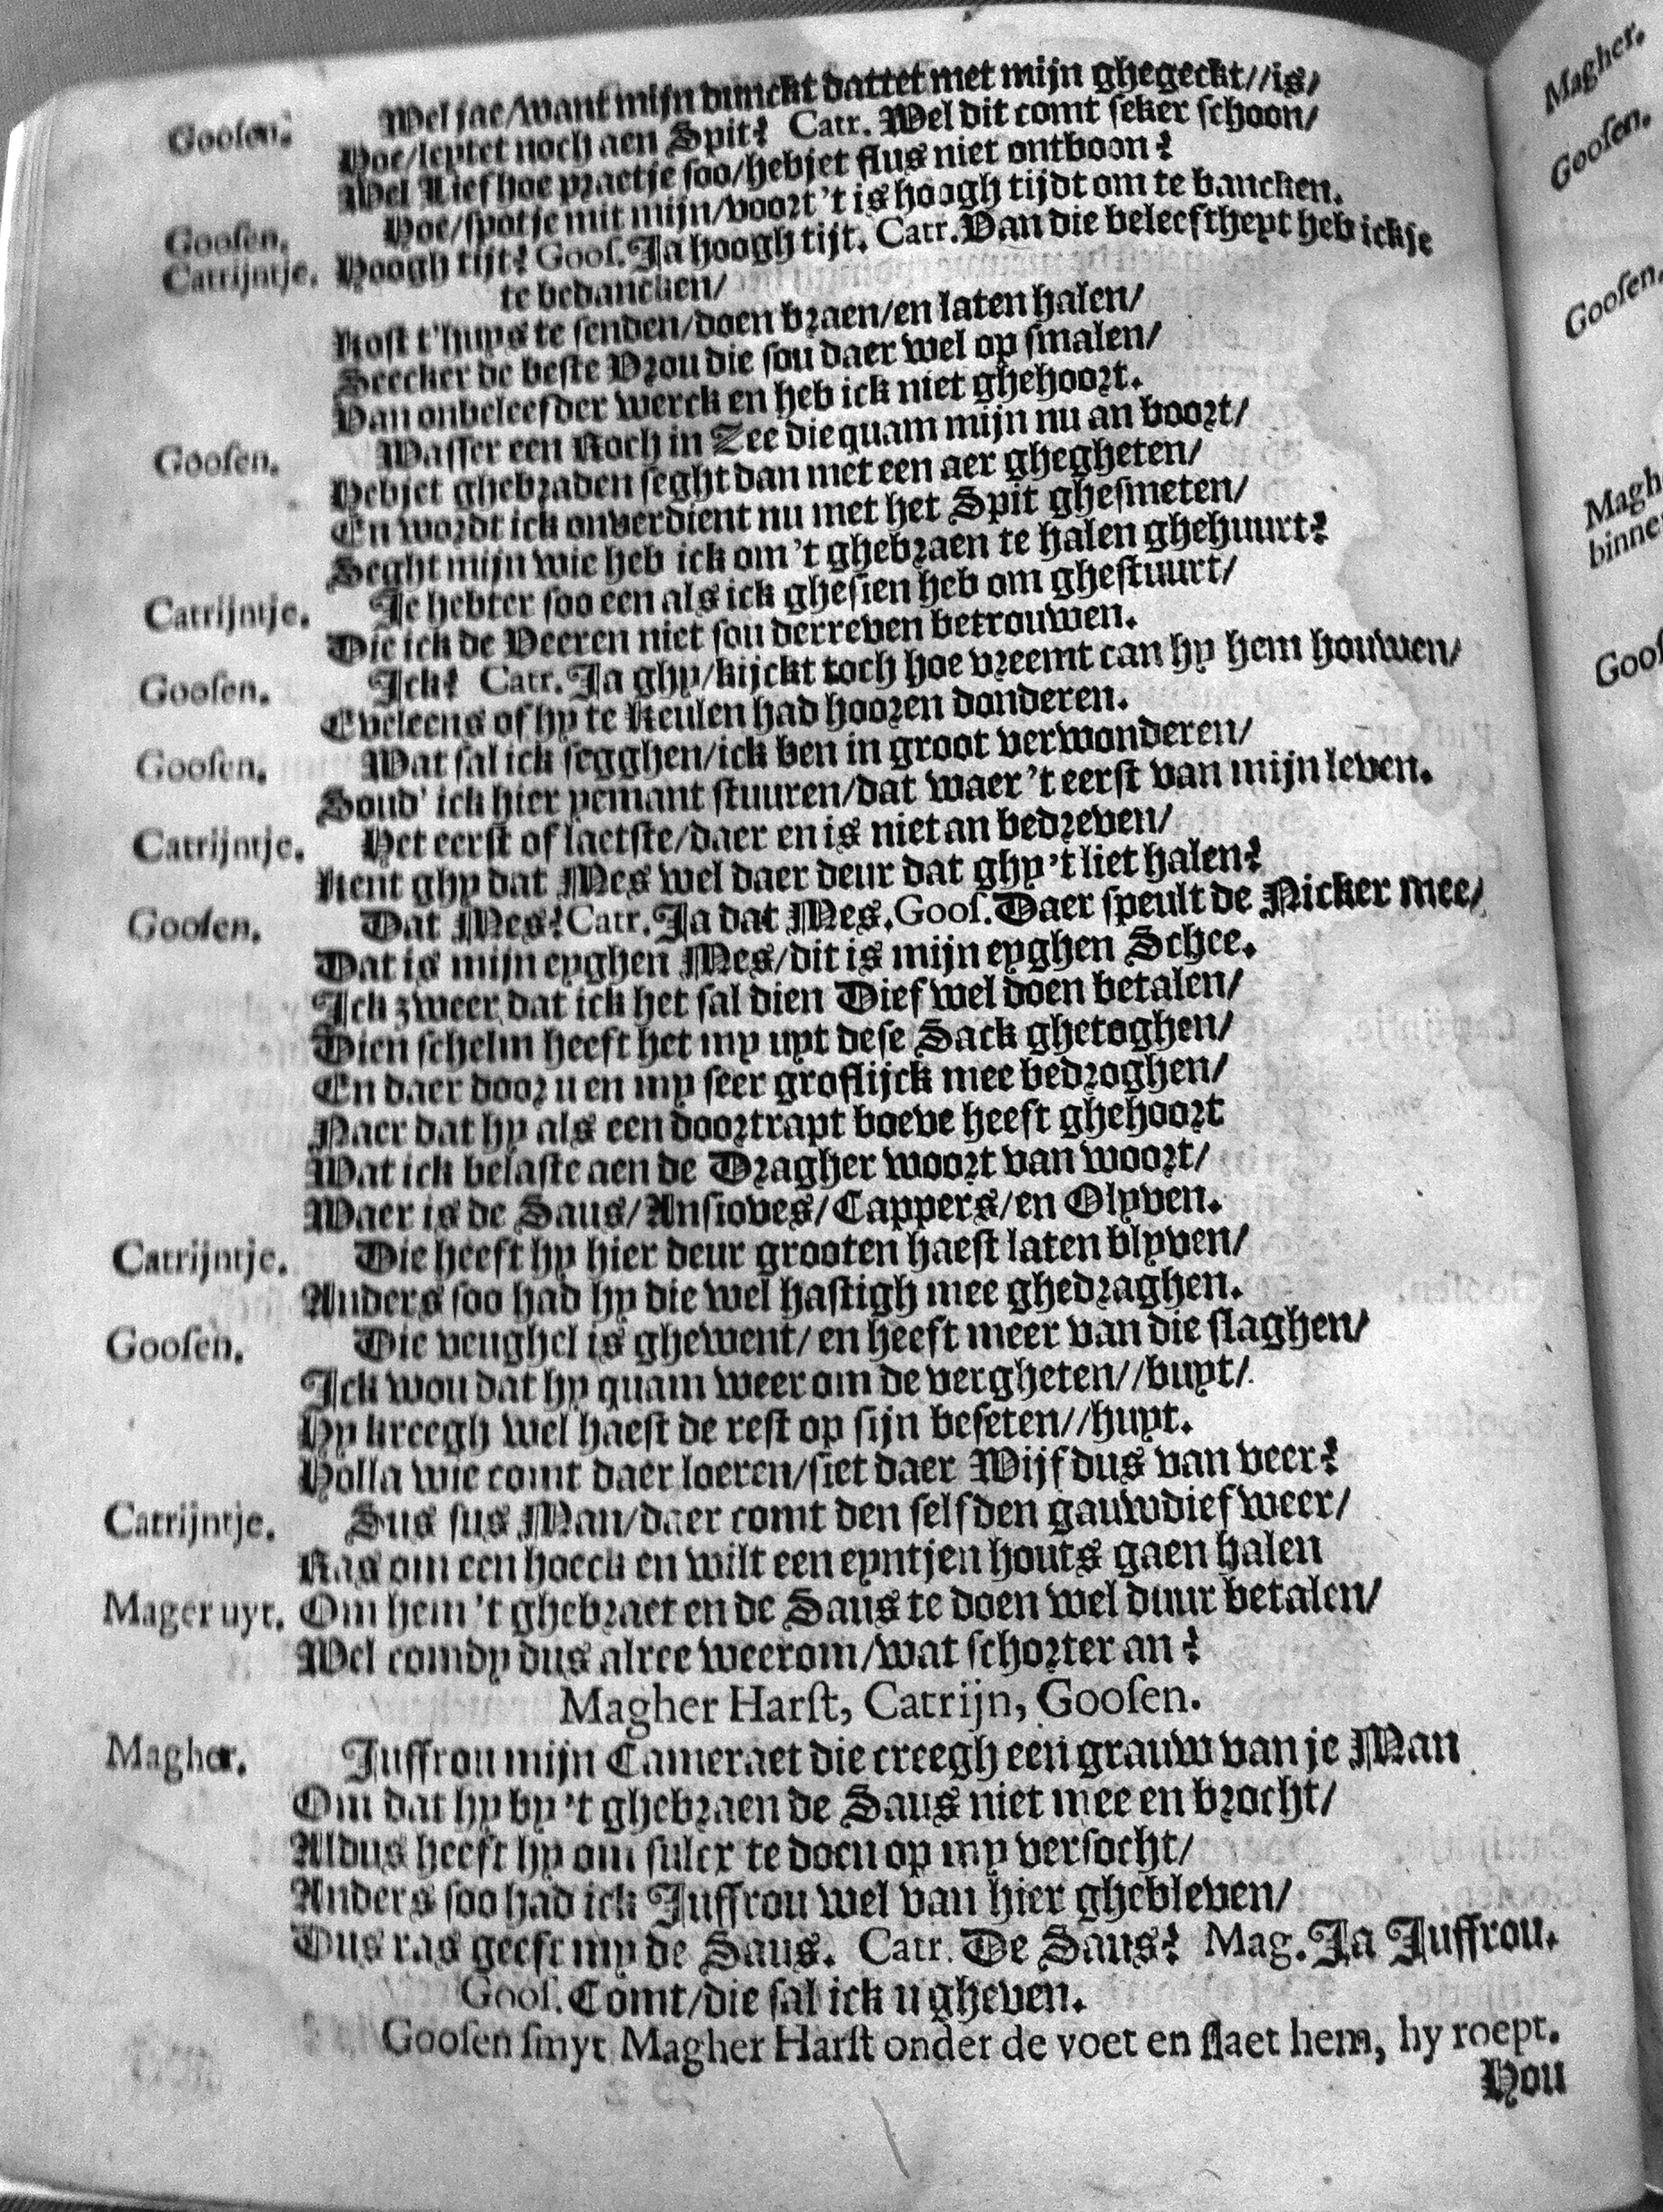 Goosen. Wel jae/want mijn dunckt dattet met mijn ghegeckt//is/
Hoe/leytet noch aen Spit? Catr. Wel dit comt seker schoon/
Wel Lief hoe praetje soo/hebjet flus niet ontboon?
Goosen. Hoe/spotje mit mijn/voort 't is hoogh tijdt om te bancken.
Catrijntje. Hoogh tijt? Goos. Ja hoogh tijt. Catr. Van die beleeftheyt heb ickje
te bedancken/
Kost t'huys te senden/doen braen/en laten halen/
Seecker de beste Vrou die sou daer wel op smalen/
Van onbeleefder werck en heb ick niet ghehoort.
Goosen. Wasser een Koch in Zee die quam mijn nu an boort/
Hebjet ghebraden seght dan met een aer ghegheten/
En wordt ick onverdient nu met het Spit ghesmeten/
Seght mijn wie heb ick om 't ghebraen te halen ghehuurt?
Catrijntje. Je hebter soo een als ick ghesien heb om ghestuurt/
Die ick de Veeren niet sou derreven betrouwen.
Goosen. Ick? Catr. Ja ghy/kijckt toch hoe vreemt can hy hem houwen/
Eveleens of hy te Keulen had hooren donderen.
Goosen. Wat sal ick segghen/ick ben in groot verwonderen/
Soud' ick hier yemant stuuren/dat waer 't eerst van mijn leven.
Catrijntje. Het eerst of laetste/daer en is niet an bedreven/
Kent ghy dat Mes wel daer deur dat ghy 't liet halen?
Goosen. Dat Mes? Catr. Ja dat Mes. Goos. Daer speult de Nicker mee/
Dat is mijn eyghen Mes/dit is mijn eyghen Schee.
Ick zweer dat ick het sal dien Dief wel doen betalen/
Dien schelm heeft het my uyt dese Sack ghetoghen/
En daer door u en my seer groflijck mee bedroghen/
Naer dat hy als een doortrapt boeve heeft ghehoort
Wat ick belaste aen de Dragher woort van woort/
Waer is de Saus/Ansioves/Cappers/en Olyven.
Catrijntje. Die heeft hy hier deur grooten haest laten blyven/
Anders soo had hy die wel hastigh mee ghedraghen.
Goosen. Die veughel is ghewent/en heeft meer van die slaghen/
Ick wou dat hy quam weerom de vergheten//buyt/
Hy kreegh wel haest de rest op sijn beseten//huyt.
Holla wie comt daer loeren/siet daer Wijf dus van veer?
Catrijntje. Sus sus Man/daer comt den selfden gauwdief weer/
Ras om een hoeck en wilt een eyntjen houts gaen halen
Mager uyt. Om hem 't ghebraet en de Saus te doen wel duur betalen/
Wel comdy dus alree weerom/wat schorter an?
Magher Harst, Catrijn, Goosen.
Magher. Juffrou mijn Cameraet die creegh een grauw van je Man
Om dat hy by 't ghebraen de Saus niet mee en brocht/
Aldus heeft hy om sulcx te doen op my versocht/
Anders soo had ick Juffrou wel van hier ghebleven/
Dus ras geeft my de Saus. Catr. De Saus? Mag. Ja Juffrou.
Goos. Comt/die sal ick u gheven.
Goosen smyt Magher Harst onder de voet en slaet hem, hy roept.
Hou
Magher.
Goosen.
Goosen.
Magh
binne
Goos